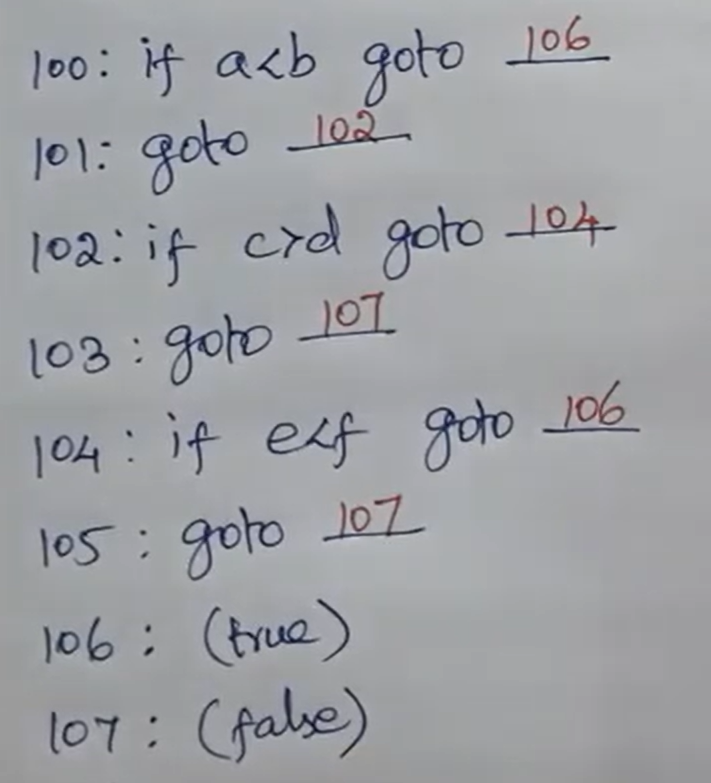 100: if a<b goto 106
101: goto 102
102: if c>d goto 104
103: goto 107
104: if e<f goto 106
105: goto 107
106: (true)
107: (false)